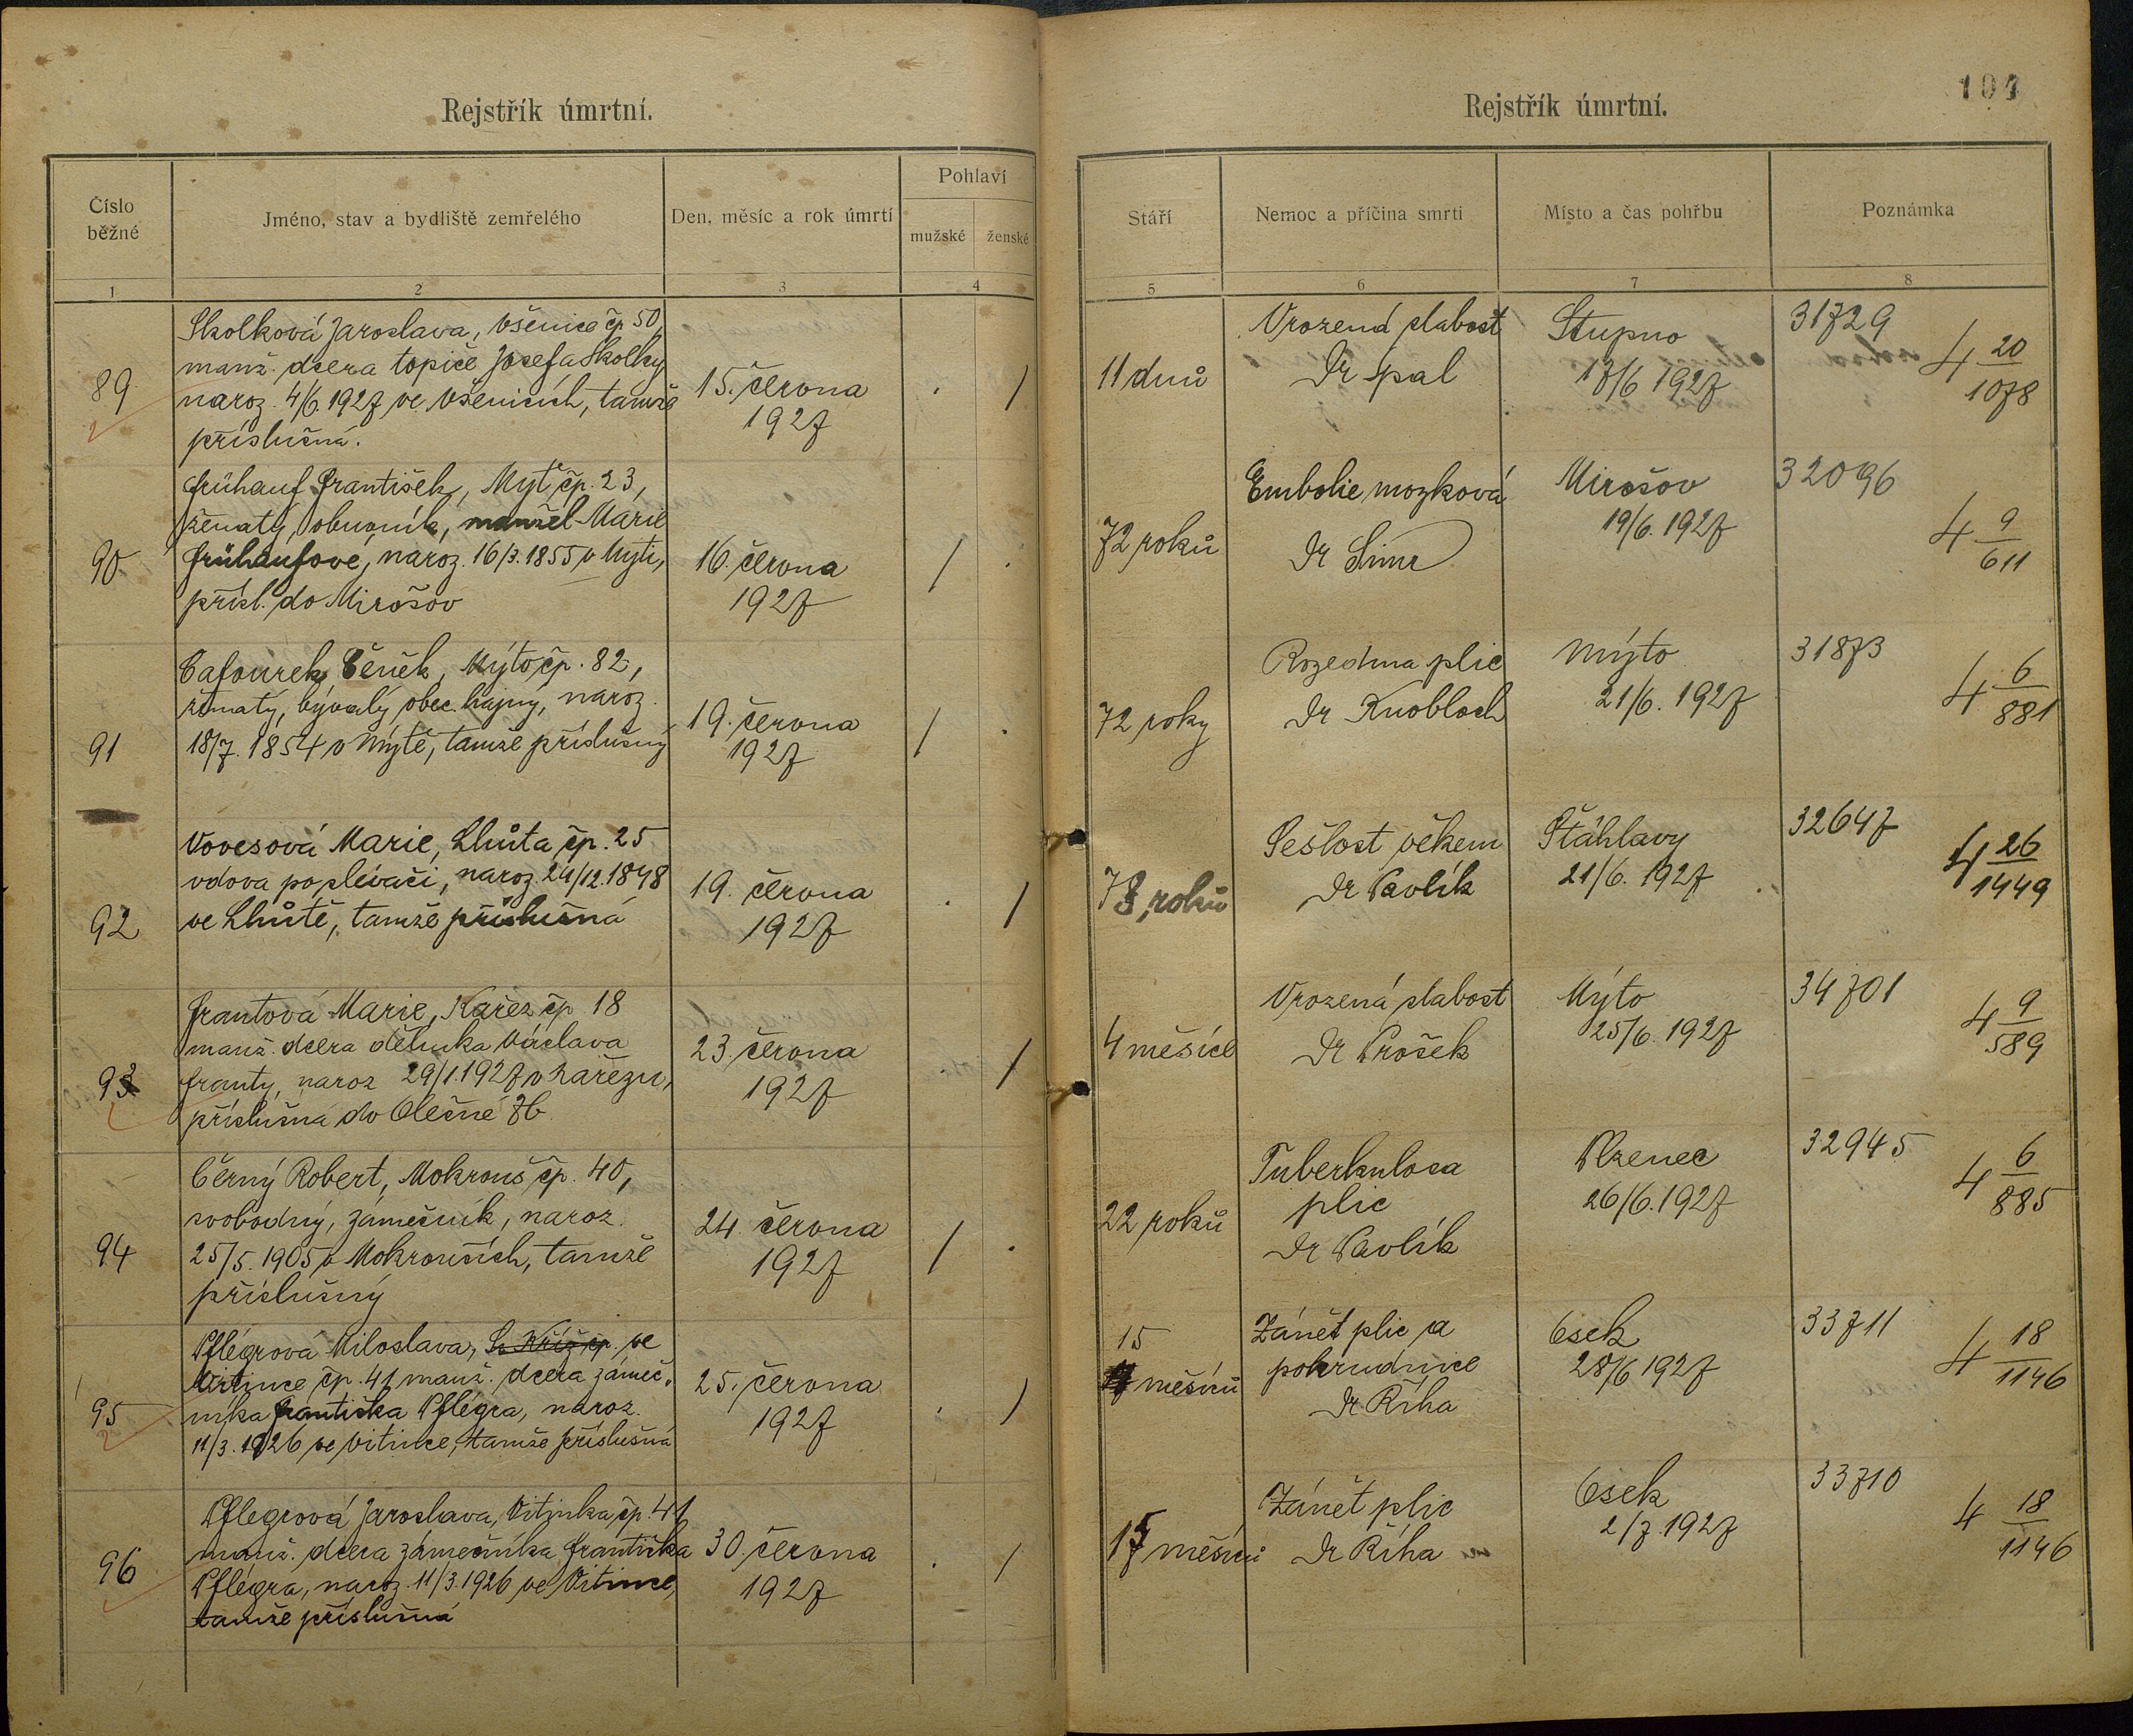 Rejstřík úmrtní.
Číslo běžné
Jméno, stav a bydliště zemřelého
Den, měsíc a rok úmrtí
Pohlaví
mužské
ženské
1
2
3
4
89
Skolková Jaroslava, Všenice čp 50,
manž. dcera topiče Josefa Skolky
naroz. 4/6.1927 ve Všenicích, tamže
příslušná.
15. června
1927
. /
90
Frühauf František, Mýť čp. 23,
ženatý, obuvník, manžel Marie
Frühaufové, naroz. 16/3.1855 v Mýti,
přísl. do Mirošov
16. června
1927
/ .
91
Cafourek Čeněk, Mýto čp. 82,
ženatý, bývalý obec. hajný, naroz.
18/7. 1854 v Mýtě, tamže příslušný
19. června
1927
/ .
92
Vovesová Marie, Lhůta čp. 25
vdova po plevači, naroz. 24/12.1848
ve Lhůtě, tamže příslušná
19. června
1927
. /
93
Frantová Marie, Kařez čp 18
manž. dcera dělníka Václava
Franty, naroz 29/1.1927 v Kařezu,
příslušná do Olešné Zb.
23. června
1927
/
94
Černý Robert, Mokrouš čp. 40,
svobodný, zámečník, naroz.
25/5. 1905 v Mokrouších, tamže
příslušný
24. června
1927
/ .
95
Pflégrová Miloslava, Sv Kříž čp. ve
Vitince čp. 41 manž. dcera zámeč.
níka Františka Pflégra, naroz.
11/3. 1926 ve Vitince, tamže příslušná
25. června
1927
. /
96
Pflegrová Jaroslava, Vitinka čp. 41
manž. dcera zámečníka Františka
Pflégra, naroz. 11/3.1926 ve Vitince,
tamže příslušná
30. června
1927
. /
Rejstřík úmrtní.
104
Stáří
Nemoc a příčina smrti
Místo a čas pohřbu
Poznámka
5
6
7
8
11 dnů
Vrozená slabost
Dr Špal
Stupno
17/6 1927
31729
4 20/1078
72 roků
Embolie mozková
Dr Šimr
Mirošov
19/6. 1927
32096
4 9/611
72 roky
Rozedma plic
Dr Knobloch
Mýto
21/6. 1927
31873
4 6/881
78 roků
Sešlost věkem
Dr Pavlík
Štáhlavy
21/6. 1927
32647
4 26/1449
4 měsíce
Vrozená slabost
Dr Prošek
Mýto
25/6. 1927
34701
4 9/589
22 roků
Tuberkulosa
plic
Dr Pavlík
Plzenec
26/6.1927
32945
4 6/885
15
měsíců
Zánět plic a
pohrudnice
Dr Říha
Osek
28/6 1927
33711
4 18/1146
15 měsíců
Zánět plic
Dr Říha
Osek
2/7.1927
33710
4 18/1146